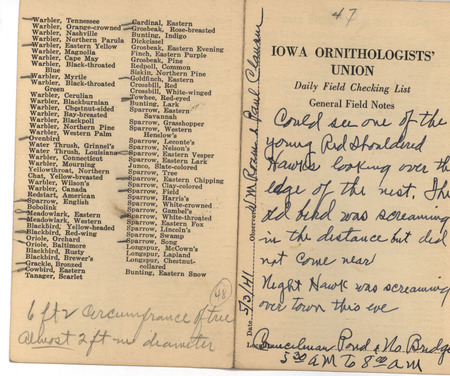 Warbler, Tennessee
Warbler, Orange-crowned
Warbler, Nashville
Warbler, Northern Parula
Warbler, Eastern Yellow
Warbler, Magnolia
Warbler, Cape May
Warbler, Black-throated
Blue
Warbler, Myrtle
Warbler, Black-throated
Green
Warbler, Cerulian
Warbler, Blackburnian
Warbler, Chestnut-sided
Warbler, Bay-breasted
Warbler, Blackpoll
Warbler, Northern Pine
Warbler, Western Palm
Ovenbird
Water Thrush, Grinnel's
Water Thrush, Louisiana
Warbler, Connecticut
Warbler, Mourning
Yellowthroat, Northern
Chat, Yellow-breasted
Warbler, Wilson's
Warbler, Canada
Redstart, American
Sparrow, English
Bobolink
Meadowlark, Eastern
Meadowlark, Western
Blackbird, Yellow-headed
Blackbird, Red-wing
Oriole, Orchard
Oriole, Baltimore
Blackbird, Rusty
Blackbird, Brewer's
Grackle, Bronzed
Cowbird, Eastern
Tanager, Scarlet
Cardinal, Eastern
Grosbeak, Rose-breasted
Bunting, Indigo
Dickcissel
Grosbeak, Eastern Evening
Finch, Eastern Purple
Grosbeak, Pine
Redpoll, Common
Siskin, Northern Pine
Goldfinch, Eastern
Crossbill, Red
Crossbill, White-winged
Towhee, Red-eyed
Bunting, Lark
Sparrow, Eastern
Savannah
Sparrow, Grasshopper
Sparrow, Western
Henslow's
Sparrow, Leconte's
Sparrow, Nelson's
Sparrow, Eastern Vesper
Sparrow, Eastern Lark
Junco, Slate-colored
Sparrow, Tree
Sparrow, Eastern Chipping
Sparrow, Clay-colored
Sparrow, Field
Sparrow, Harris's
Sparrow, White-crowned
Sparrow, Gambel's
Sparrow, White-throated
Sparrow, Eastern Fox
Sparrow, Lincoln's
Sparrow, Swamp
Sparrow, Song
Longspur, McCown's
Longspur, Lapland
Longspur, Chestnut-
collared
Bunting, Eastern Snow
48
6 ft 2 circumfrance of tree
Almost 2 ft in diameter
47
IOWA ORNITHOLOGISTS'
UNION
Daily Field Checking List
General Field Notes
Could see one of the
young Red Shouldered
Hawks looking over the
edge of the nest. The
old bird was screaming
in the distance but did
not come near
Night Hawk was screaming
over town this eve
Date 5/3/41 Observer W M Rosene & Paul
Councilman Pond & No Bridge
5:30 AM To 8:00 AM